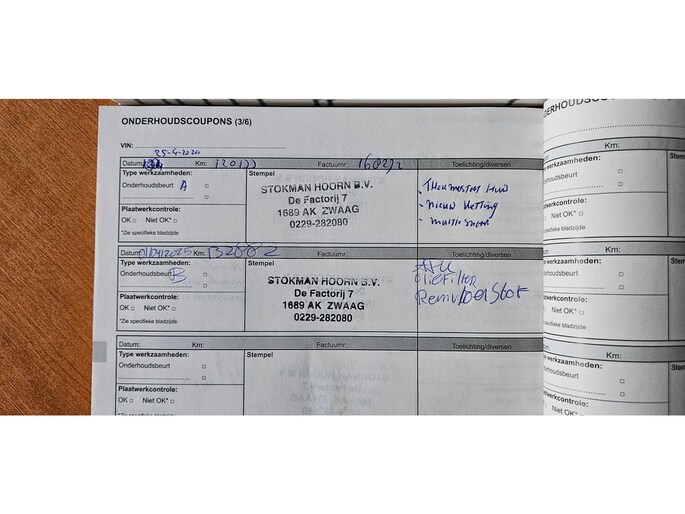 ONDERHOUDSCOUPONS (3/6)
VIN:
25-4-2024
Datum: Km: Factuurnr.: Toelichting/diversen
Type werkzaamheden: Stempel
Onderhoudsbeurt A
STOKMAN HOORN B.V.
De Factorij 7
1689 AK ZWAAG
0229-282080
- Thermostaat
- nieuw ketting
- multi
Plaatwerkcontrole:
OK Niet OK*
*Zie specifieke bladzijde
Datum: 01/04/2025 Km: 132882 Factuurnr.: Toelichting/diversen
Type werkzaamheden: Stempel
Onderhoudsbeurt B
STOKMAN HOORN B.V.
De Factorij 7
1689 AK ZWAAG
0229-282080
Oliefilter
Remvloeistof
Plaatwerkcontrole:
OK Niet OK*
*Zie specifieke bladzijde
Datum: Km: Factuurnr.: Toelichting/diversen
Type werkzaamheden: Stempel
Onderhoudsbeurt
Plaatwerkcontrole:
OK Niet OK*
*Zie specifieke bladzijde
Datum:
Type werkzaamheden:
Onderhoudsbeurt
Plaatwerkcontrole:
OK Niet OK*
*Zie specifieke bladzijde
Datum:
Type werkzaamheden:
Onderhoudsbeurt
Plaatwerkcontrole:
OK Niet OK*
*Zie specifieke bladzijde
Datum:
Type werkzaamheden:
Onderhoudsbeurt
Plaatwerkcontrole:
OK Niet OK*